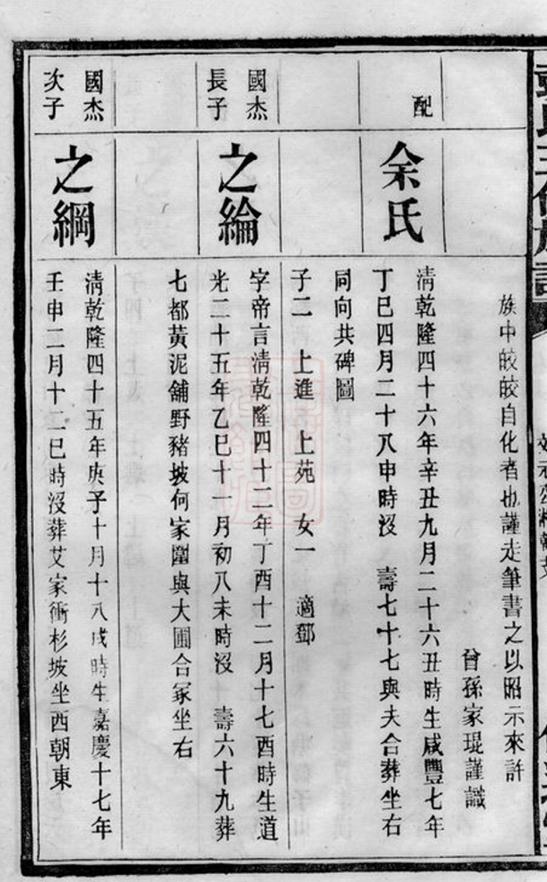 族中皎皎自化者也謹走筆書之以昭示來許
曾孫家琨謹識
配
余氏
清乾隆四十六年辛丑九月二十六丑時生咸豐七年
丁巳四月二十八申時沒　壽七十七與夫合葬坐右
同向共碑圖
子二　上進　上苑　女一　適鄧
國杰
長子
之綸
字帝言清乾隆四十二年丁酉十二月十七酉時生道
光二十五年乙巳十一月初八未時沒　壽六十九葬
七都黃泥舖野豬坡何家圍與大圃合冢坐右
國杰
次子
之綱
清乾隆四十五年庚子十月十八戌時生嘉慶十七年
壬申二月十二巳時沒葬艾家衝杉坡坐西朝東